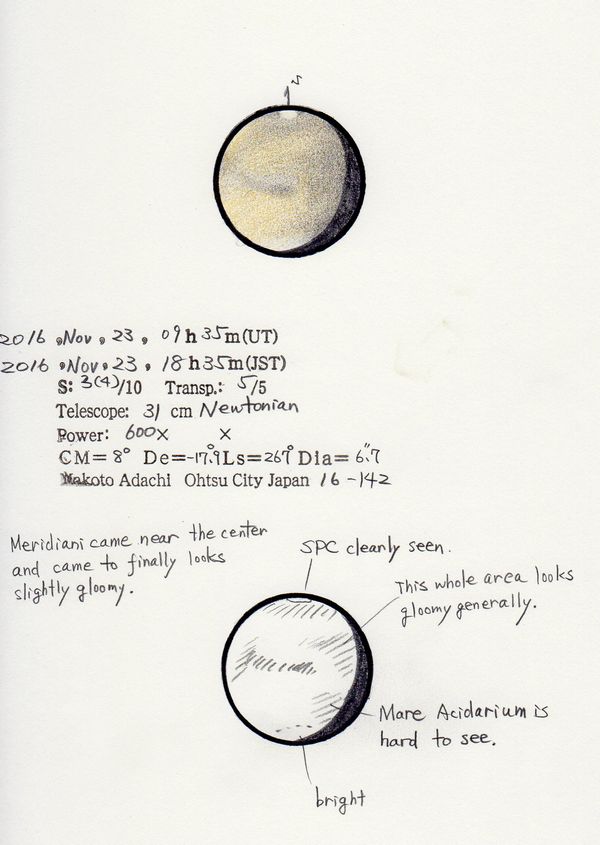 S
2016 , Nov , 23 , 09 h 35 m (UT)
2016 , Nov , 23 , 18 h 35 m (JST)
S: 3(4)/10 Transp.: 5/5
Telescope: 31 cm Newtonian
Power: 600× ×
CM= 8° De=-17.9° Ls=267° Dia= 6.″7
Makoto Adachi Ohtsu City Japan 16-142
Meridiani came near the center
and came to finally looks
slightly gloomy.
SPC clearly seen.
This whole area looks
gloomy generally.
Mare Acidarium is
hard to see.
bright